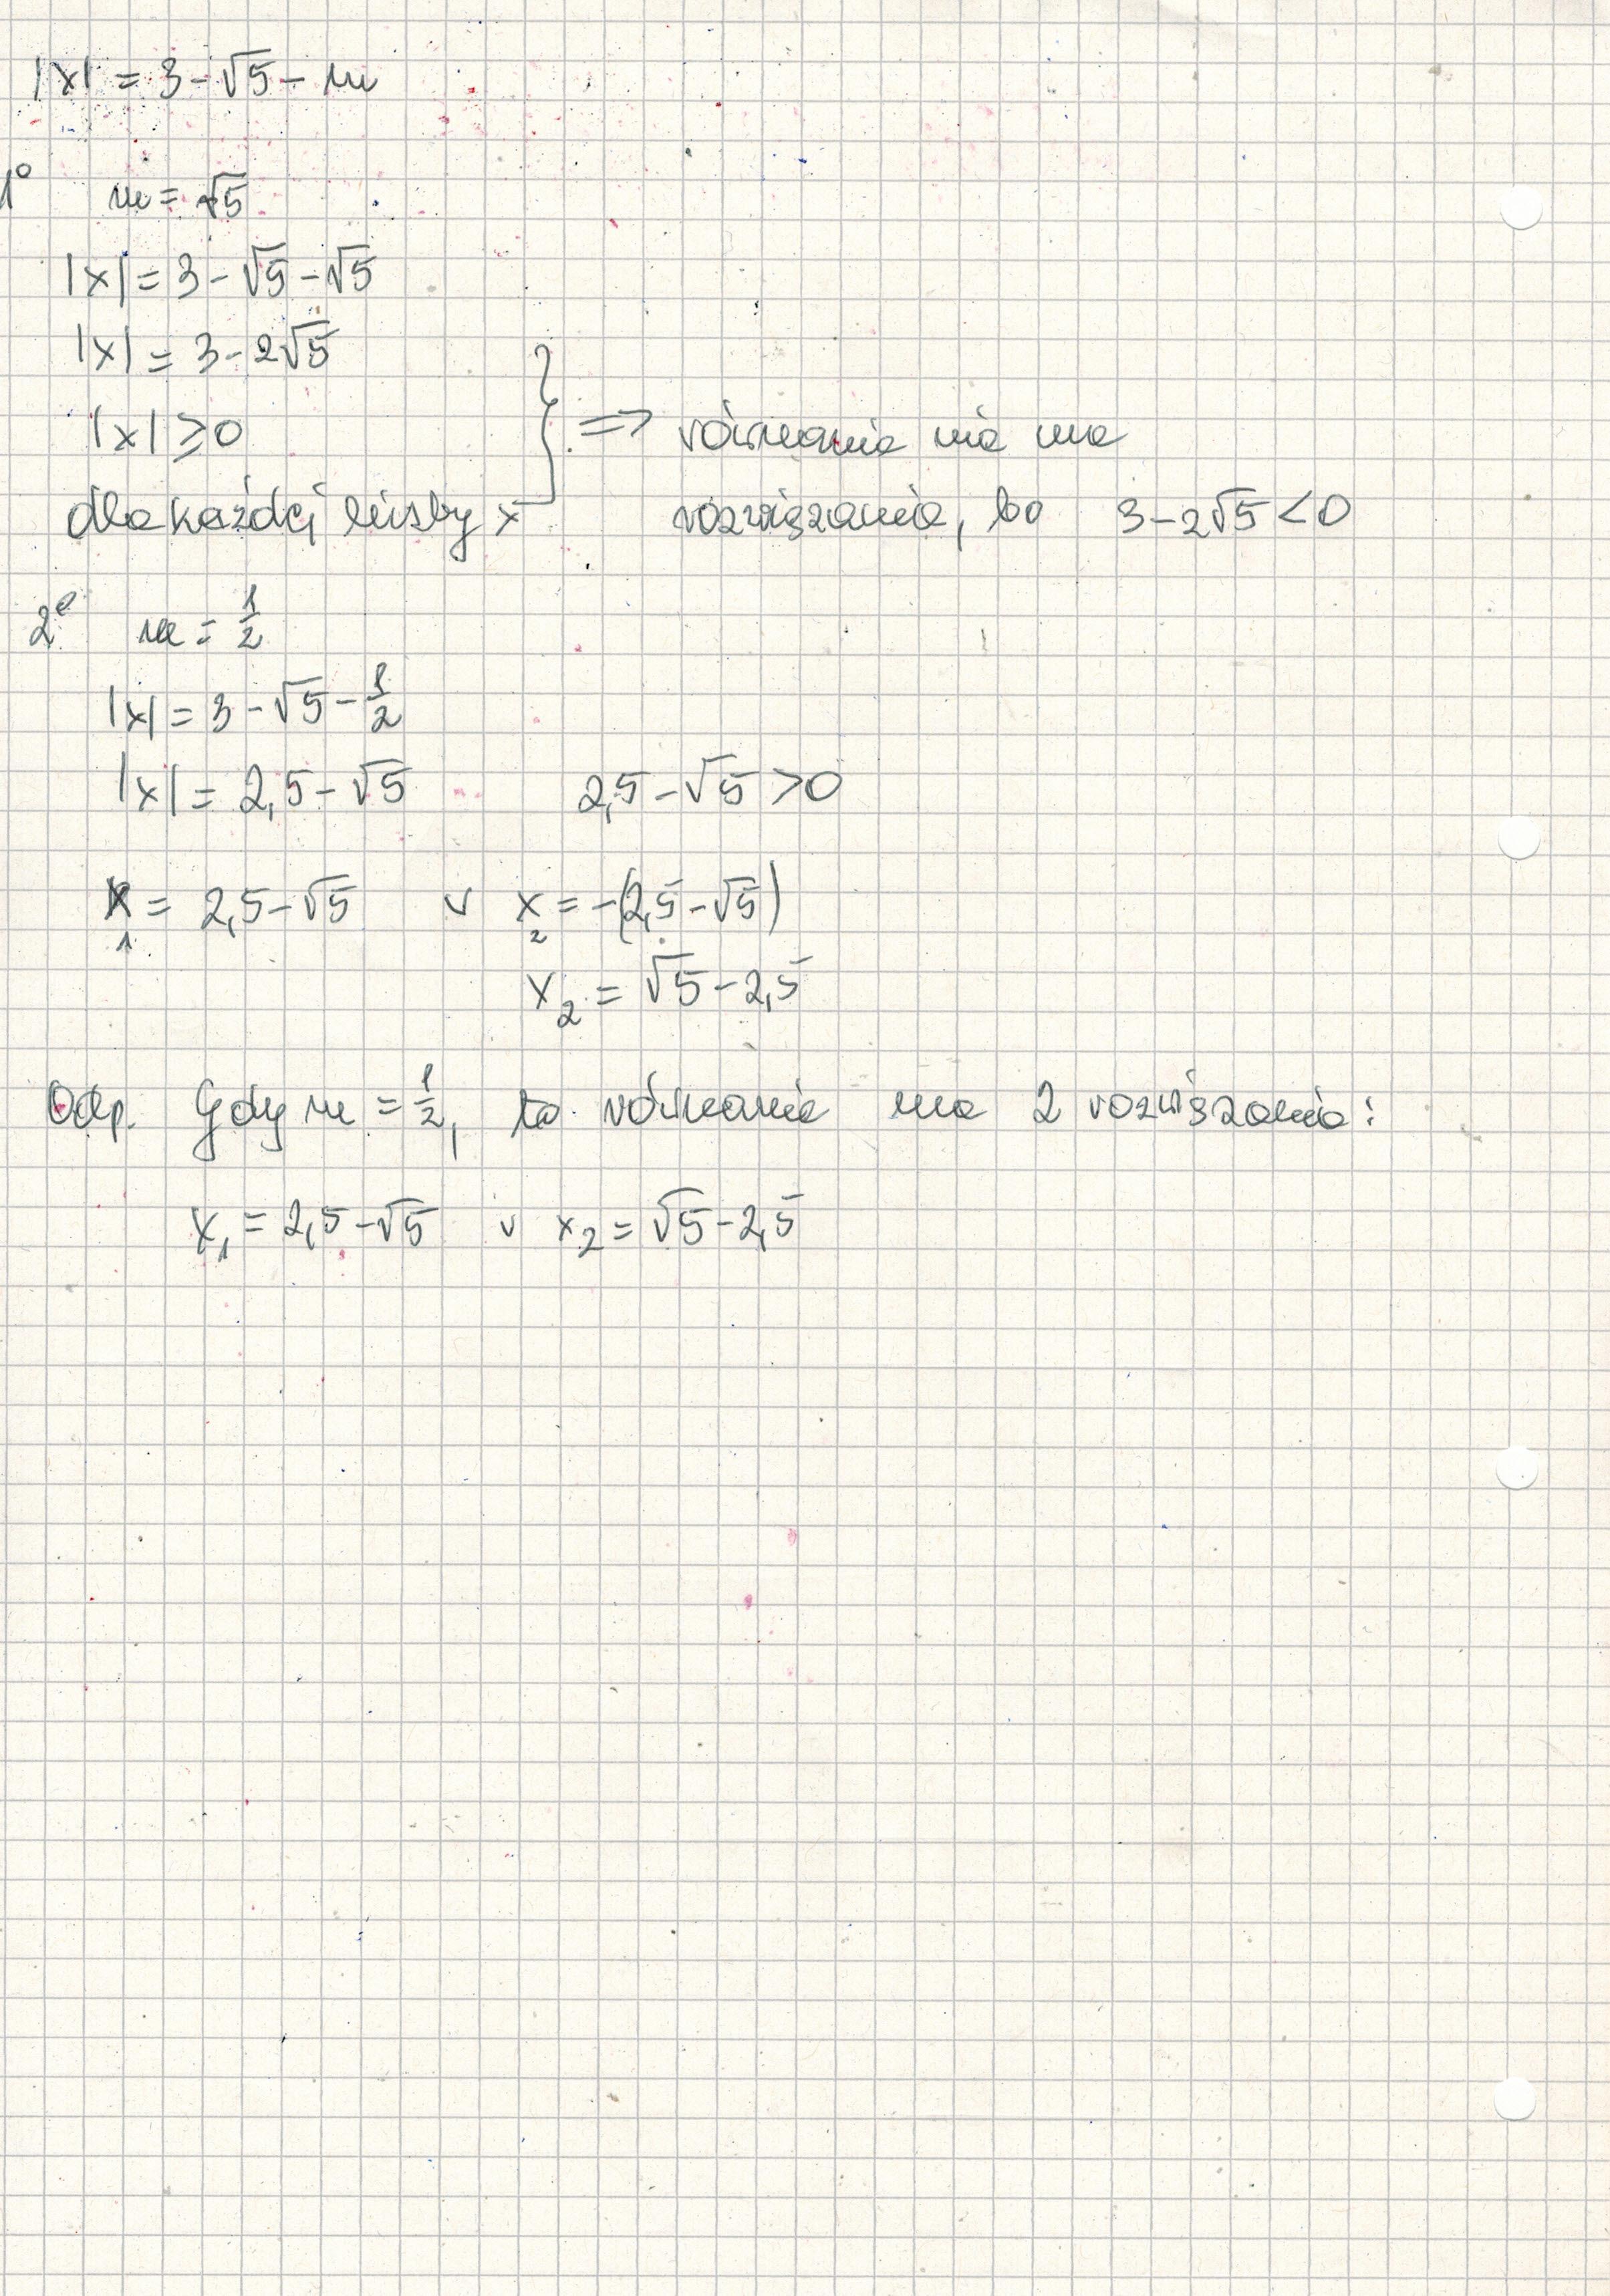 |x| = 3 - √5 - m
1° m = √5
|x| = 3 - √5 - √5
|x| = 3 - 2√5
|x| ≥ 0 } => równanie nie ma
dla każdej liczby x rozwiązania, bo 3 - 2√5 < 0
2° m = 1/2
|x| = 3 - √5 - 1/2
|x| = 2,5 - √5 2,5 - √5 > 0
x₁ = 2,5 - √5 v x₂ = -(2,5 - √5)
x₂ = √5 - 2,5
Odp. Gdy m = 1/2, to równanie ma 2 rozwiązania:
x₁ = 2,5 - √5 v x₂ = √5 - 2,5